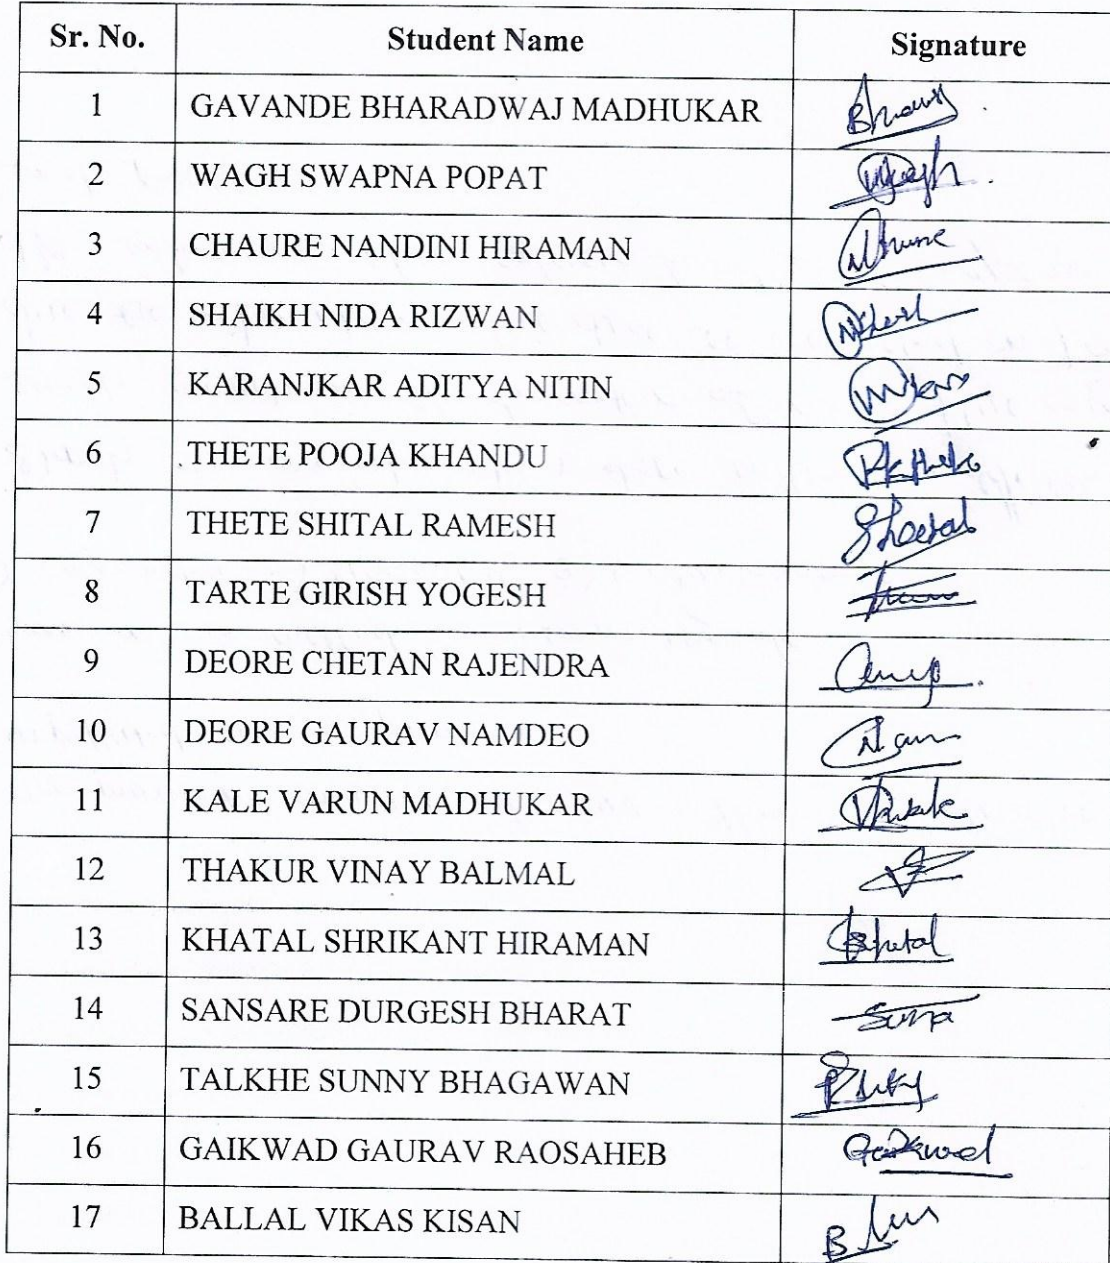 Sr. No. Student Name Signature
1 GAVANDE BHARADWAJ MADHUKAR
2 WAGH SWAPNA POPAT
3 CHAURE NANDINI HIRAMAN
4 SHAIKH NIDA RIZWAN
5 KARANJKAR ADITYA NITIN
6 THETE POOJA KHANDU
7 THETE SHITAL RAMESH Sheetal
8 TARTE GIRISH YOGESH
9 DEORE CHETAN RAJENDRA
10 DEORE GAURAV NAMDEO
11 KALE VARUN MADHUKAR
12 THAKUR VINAY BALMAL
13 KHATAL SHRIKANT HIRAMAN
14 SANSARE DURGESH BHARAT
15 TALKHE SUNNY BHAGAWAN
16 GAIKWAD GAURAV RAOSAHEB Gaikwad
17 BALLAL VIKAS KISAN